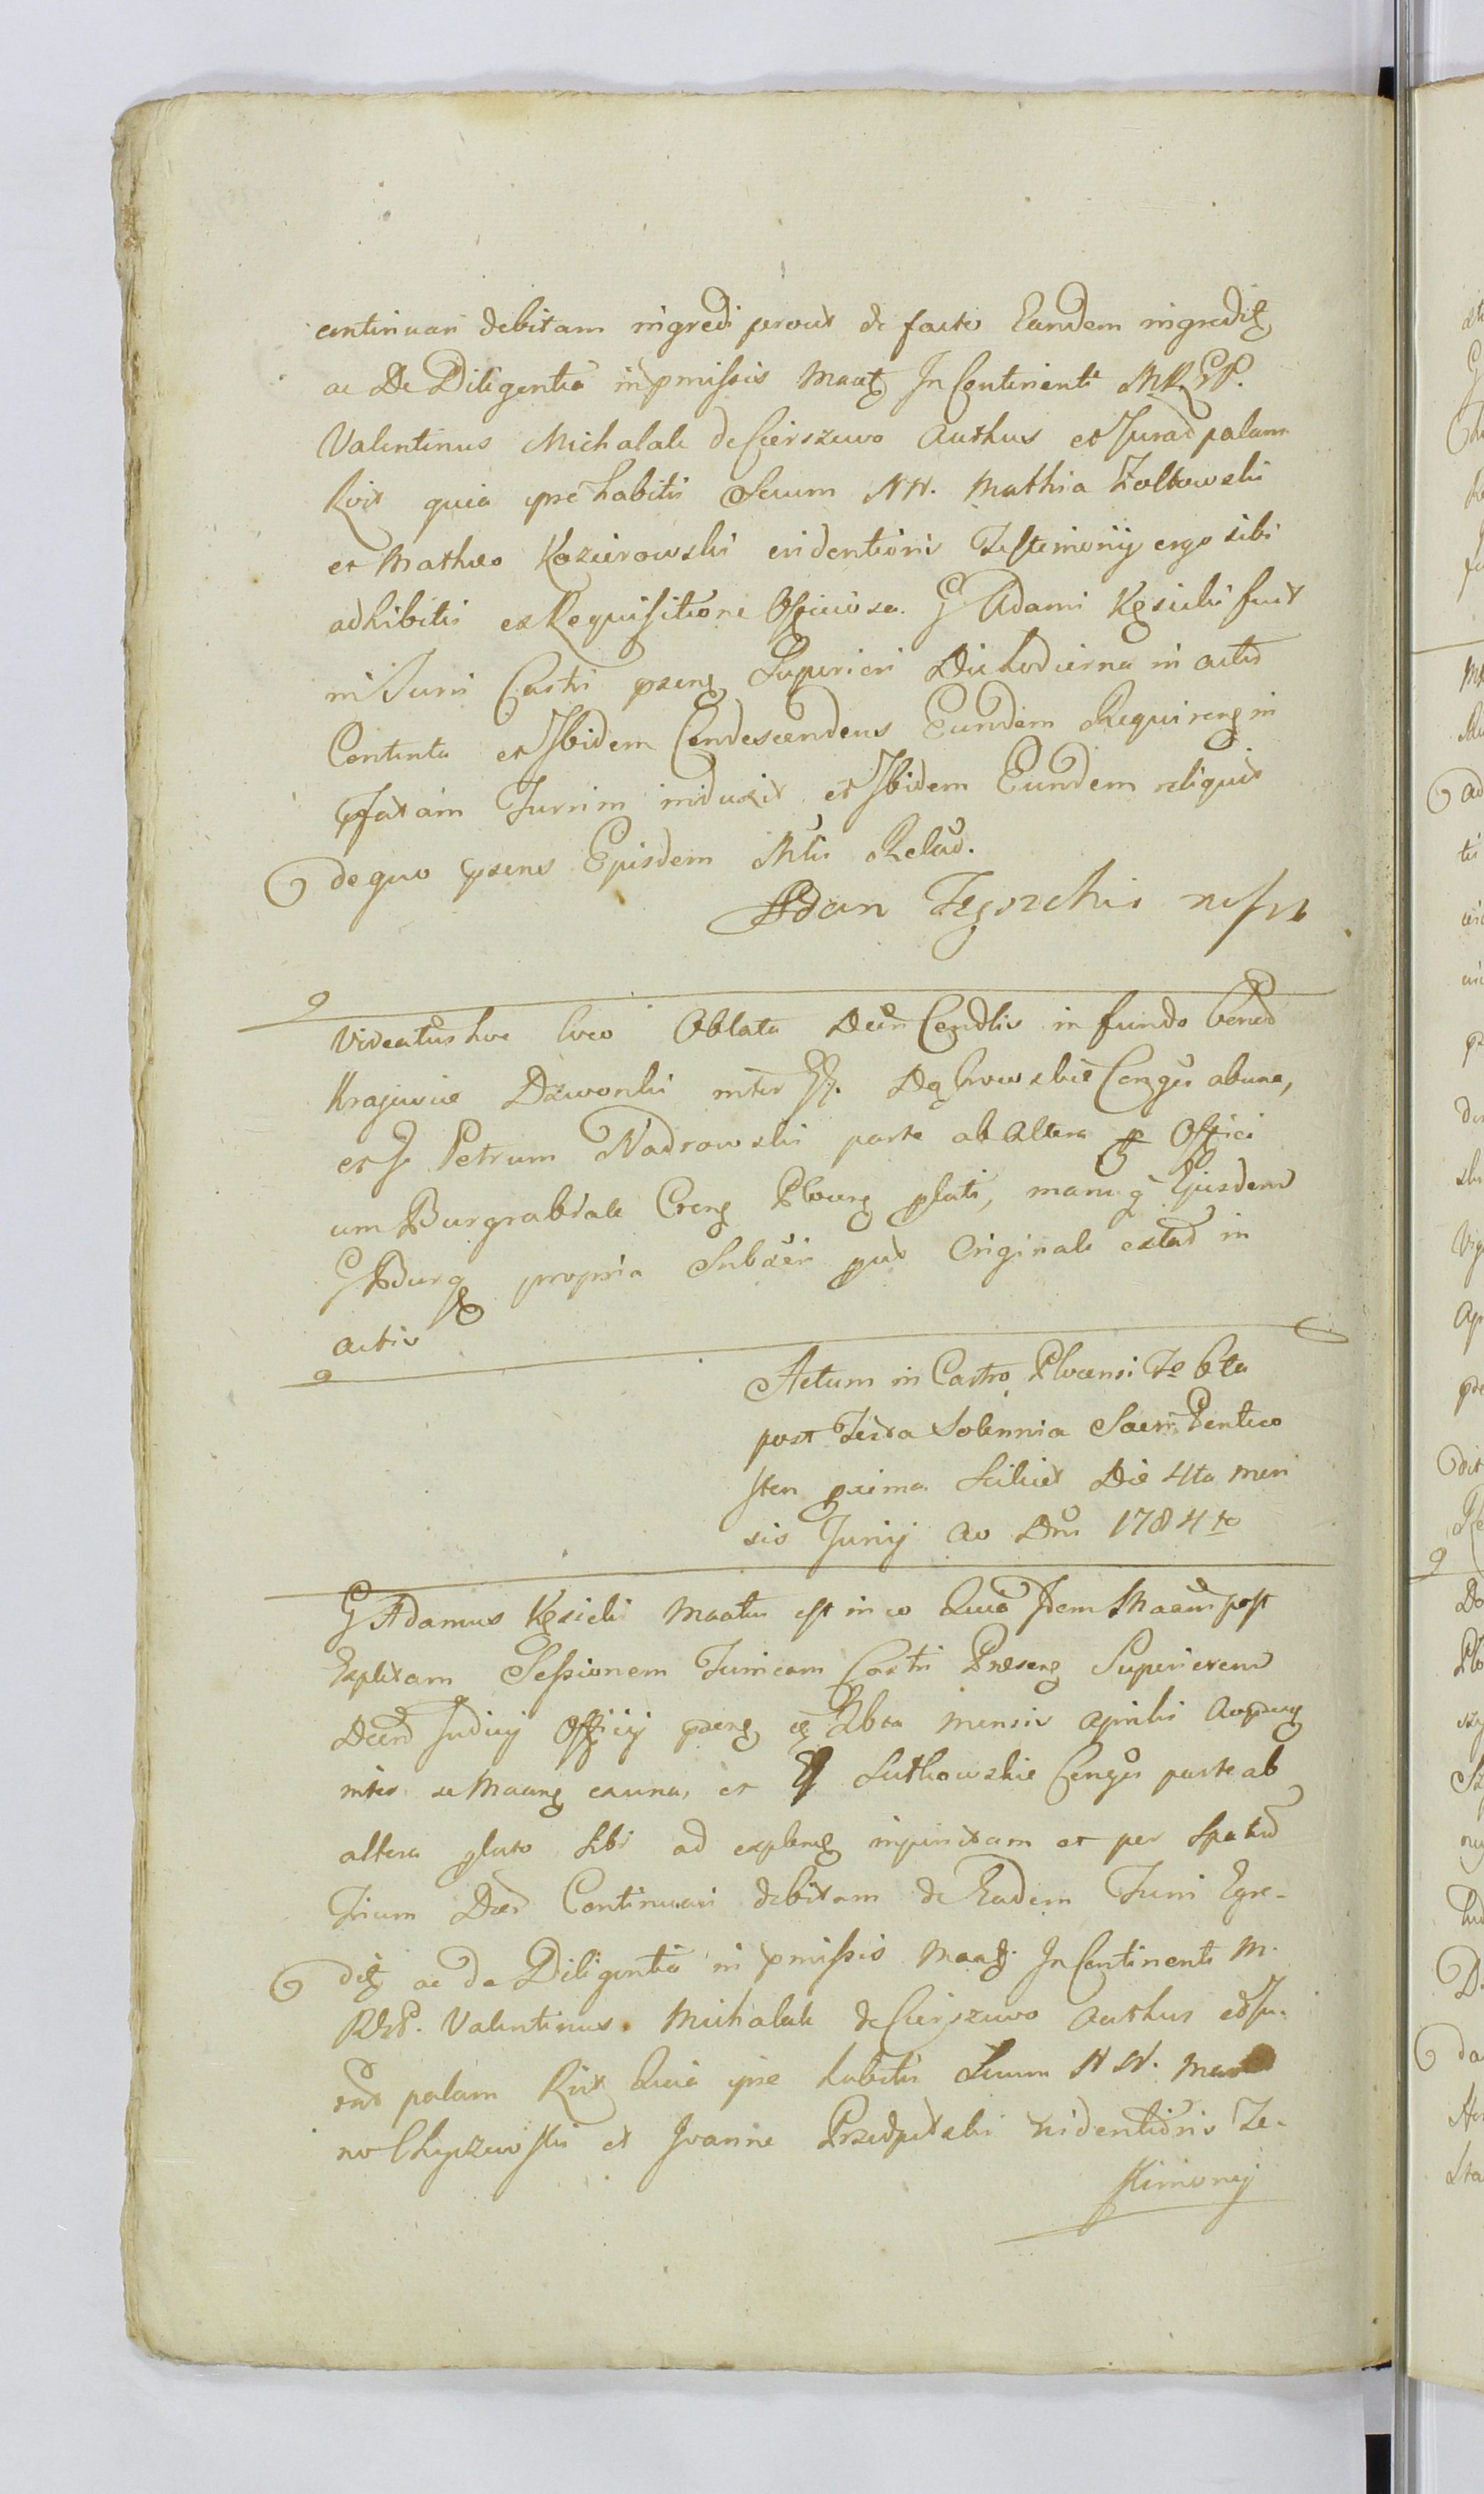 continuari debitam ingredi prout de facto Eandem ingredit
ac De Diligentia in pmissis Maat In Continenti MREP.
Valentinus Michalak de Cierszewo Authus et Jurad palam
Rvit quia ipse habitis Secum NN. Mathia Zoltowski
et Matheo Kozierowski evidentioris Testimonij ergo sibi
adhibitis ex Requisitione Officiosa G Adami Kęsicki fuit
in Turri Castri psens Superiori Die hodierna in actis
Contenta et Ibidem Condescendens Eundem Requirens in
pfatam Turrim induxit et Ibidem Eundem reliquit
de quo psens Ejusdem Mlis Relad.
Adam
Videatur hoc loco Oblata Decr Condlis in fundo bonod
Krajewice Dzwonki inter Dąbrowskie Conges ab una,
et G Petrum Nadrowski parte ab altera p Offici
um Burgrabiale Crens Plocens plati, manuq Ejusdem
G Burg propria Subscri put Originale extad in
actis
Actum in Castro Plocensi Fa 6ta
post Festa Solennia Sacri Penteco
sten pxima Scilicet Die 4ta men
sis Junij Ao Dni 1784to
G Adamus Kęsicki Maatus est in eo Quia Idem Maans post
Explitam Sessionem Turricam Castri Præsens Superiorem
Decro Judicij Officij psens Sbta mensis Aprilis Ao psens
inter se Maans ex una, et Sutkowskie Conges parte ab
altera plato sibi ad explend injunctam et per Spatiū
Trium Dier Continuari debitam de Eadem Turri Egre-
dit ac de Diligentia in pmissis Maat. In Continenti M.
REP. Valentinus Michalak de Cierszewo Authus et Ju-
rad palam Rvit Quia ipse habitis Secum NN.
et Joanne Przedpełski evidentioris Te-
stimonij